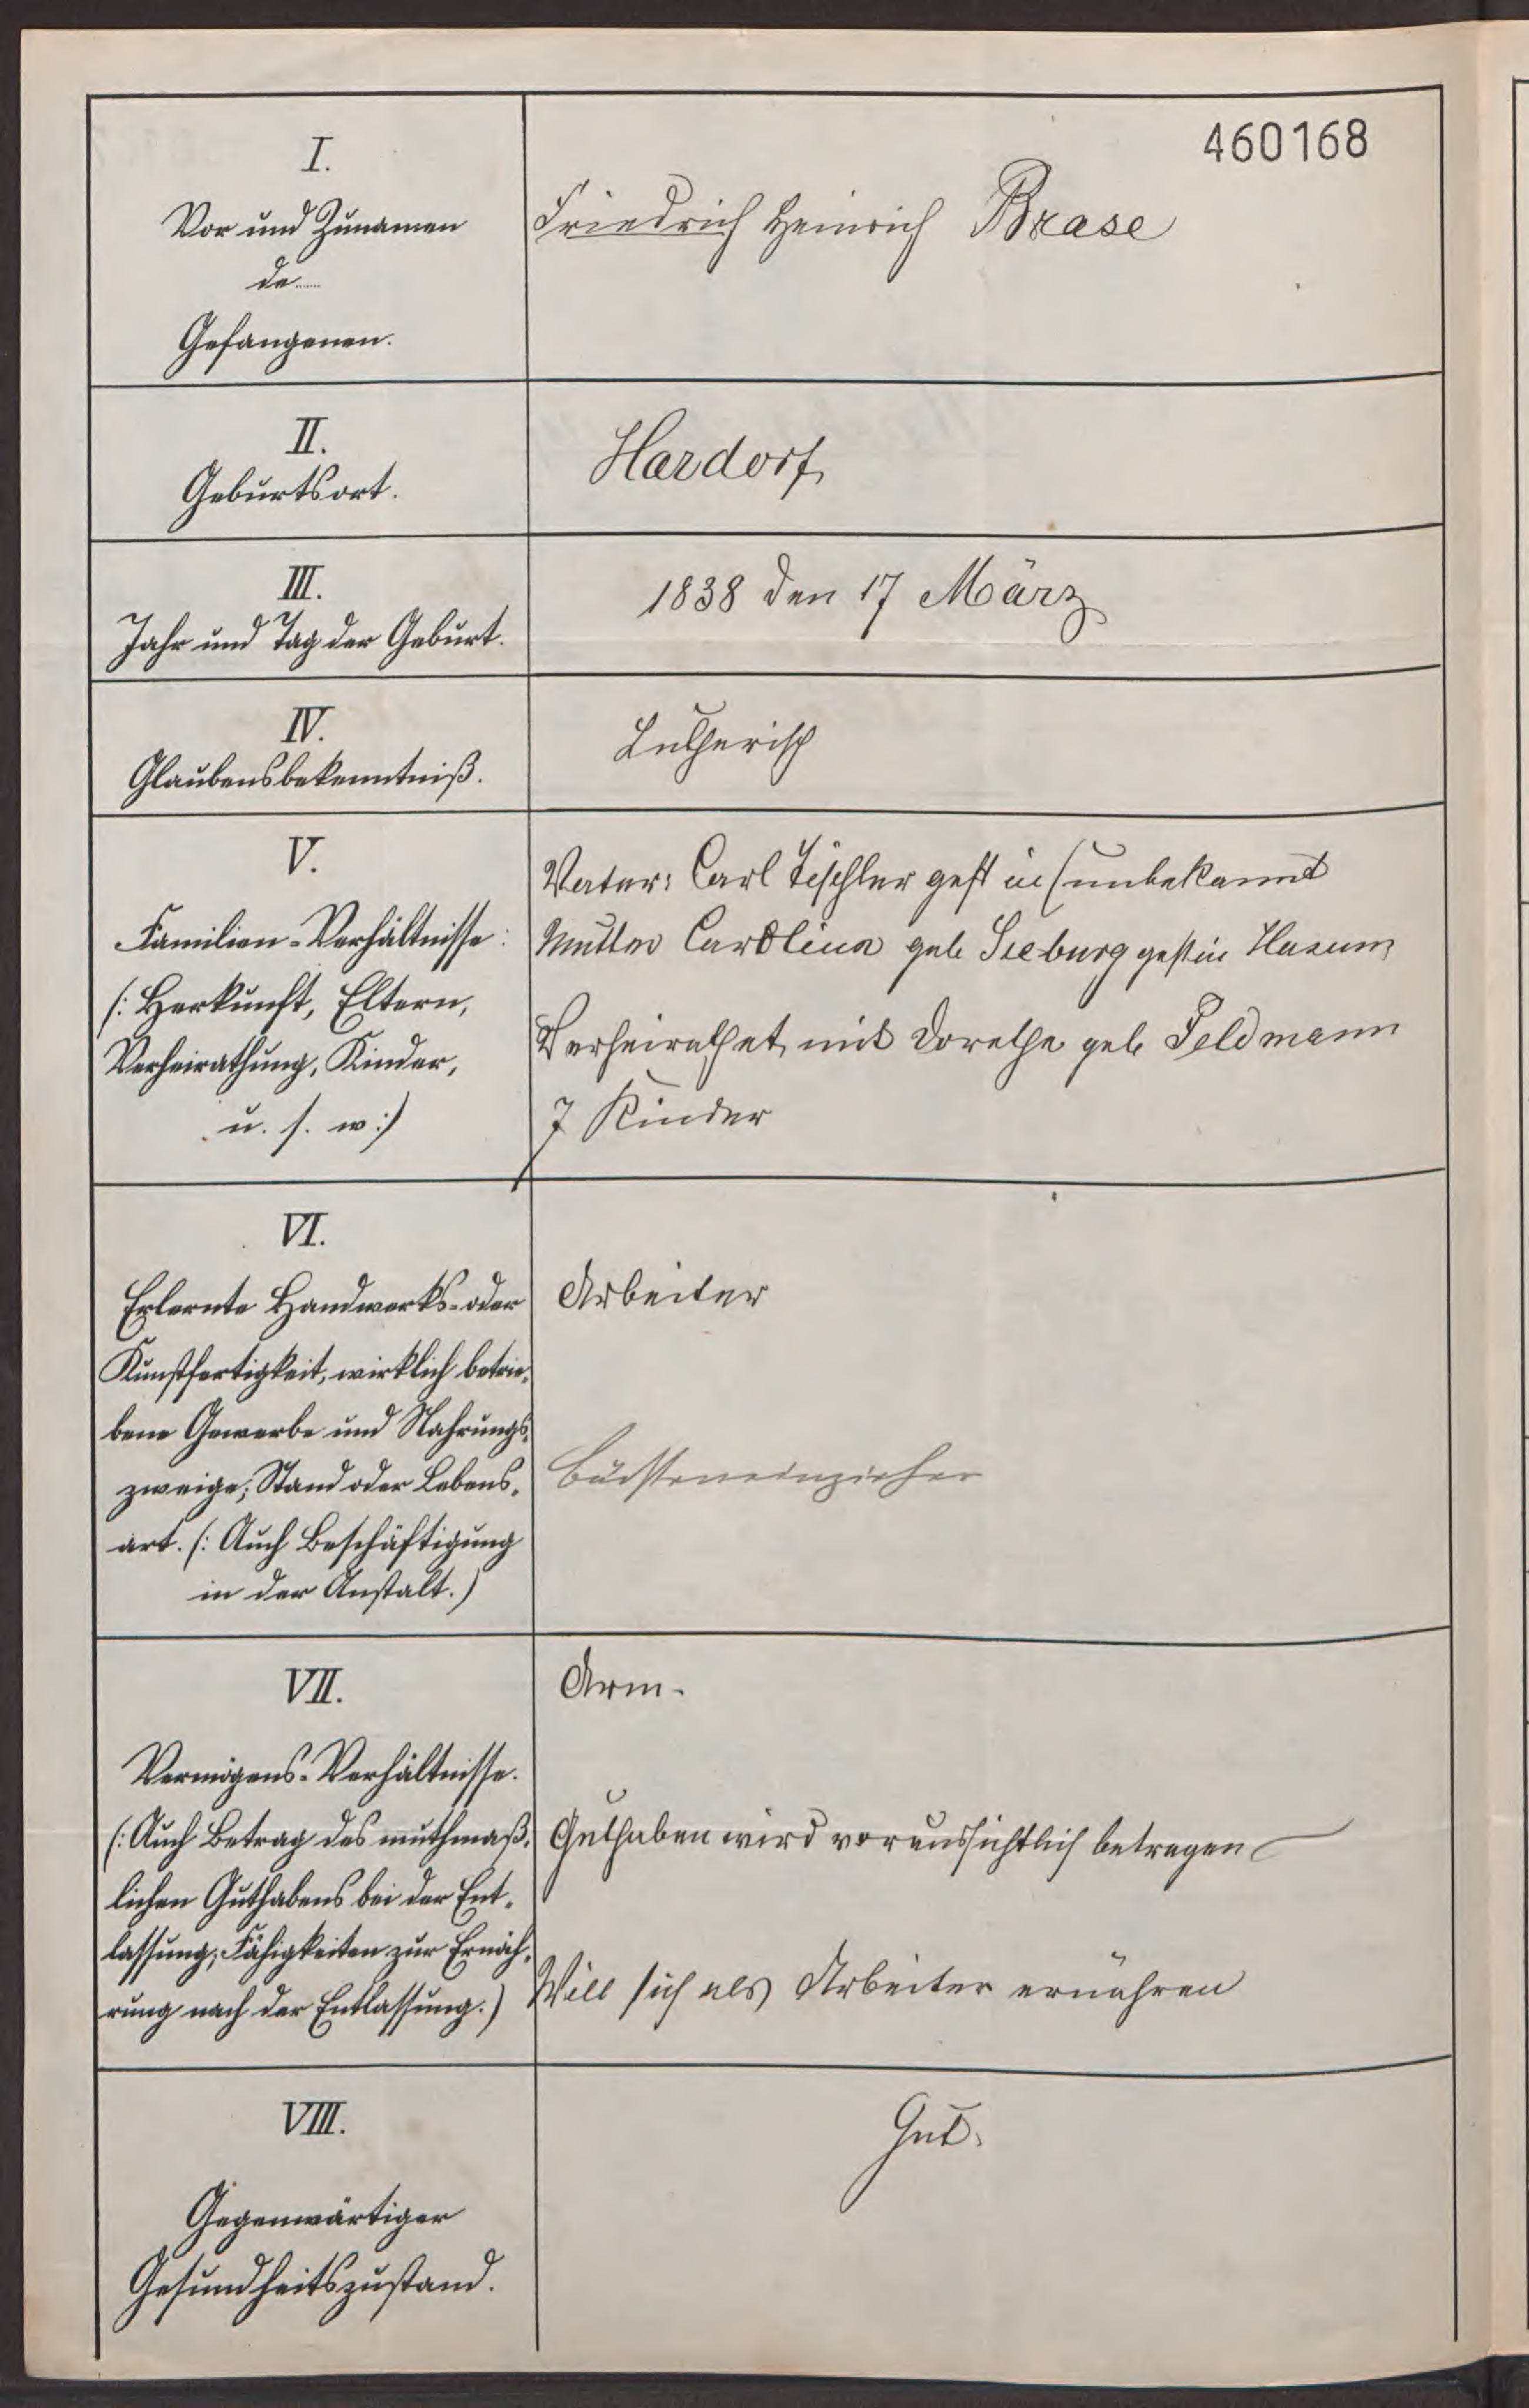 460168
I.
Vor und Zunamen
de......
Gefangenen.
Friedrich Heinrich Brase
II.
Geburtsort.
Hardorf
III.
Jahr und Tag der Geburt.
1838 den 17 März
IV.
Glaubensbekenntniß.
Lutherisch
V.
Familien-Verhältnisse:
(: Herkunft, Eltern,
Verheirathung, Kinder,
u. s. w :)
Vater: Carl Tischler gest in (unbekannt
Mutter Carolina geb Seeburg gest in Hasum
Verheirathet mit Dorethe geb Feldmann
7 Kinder
VI.
Erlernte Handwerks- oder
Kunstfertigkeit, wirklich betrie-
bene Gewerbe und Nahrungs-
zweige; Stand oder Lebens-
art. (: Auch Beschäftigung
in der Anstalt.)
Arbeiter
Bürsteneinzieher
VII.
Vermögens-Verhältnisse.
(: Auch Betrag des muthmaß-
lichen Guthabens bei der Ent-
lassung; Fähigkeiten zur Ernäh-
rung nach der Entlassung.)
Arm.
Guthaben wird voraussichtlich betragen
Will sich als Arbeiter ernähren
VIII.
Gegenwärtiger
Gesundheitszustand.
Gut.